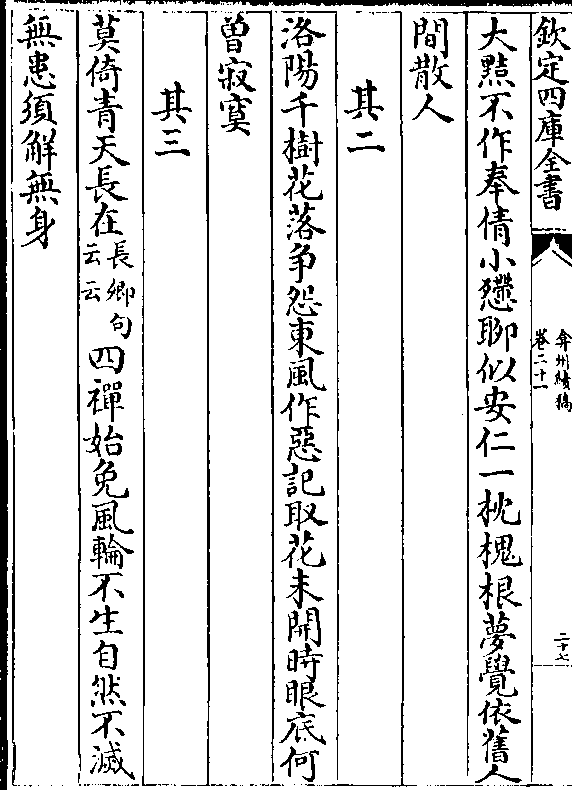 欽定四庫全書
弇州續稿
卷二十一
二十七
大黠不作奉倩小戁聊似安仁一枕槐根夢覺依舊人
間散人
其二
洛陽千樹花落争怨東風作惡記取花未開時眼底何
曾寂寞
其三
莫倚青天長在長卿句云云四禪始免風輪不生自然不滅
無患須解無身